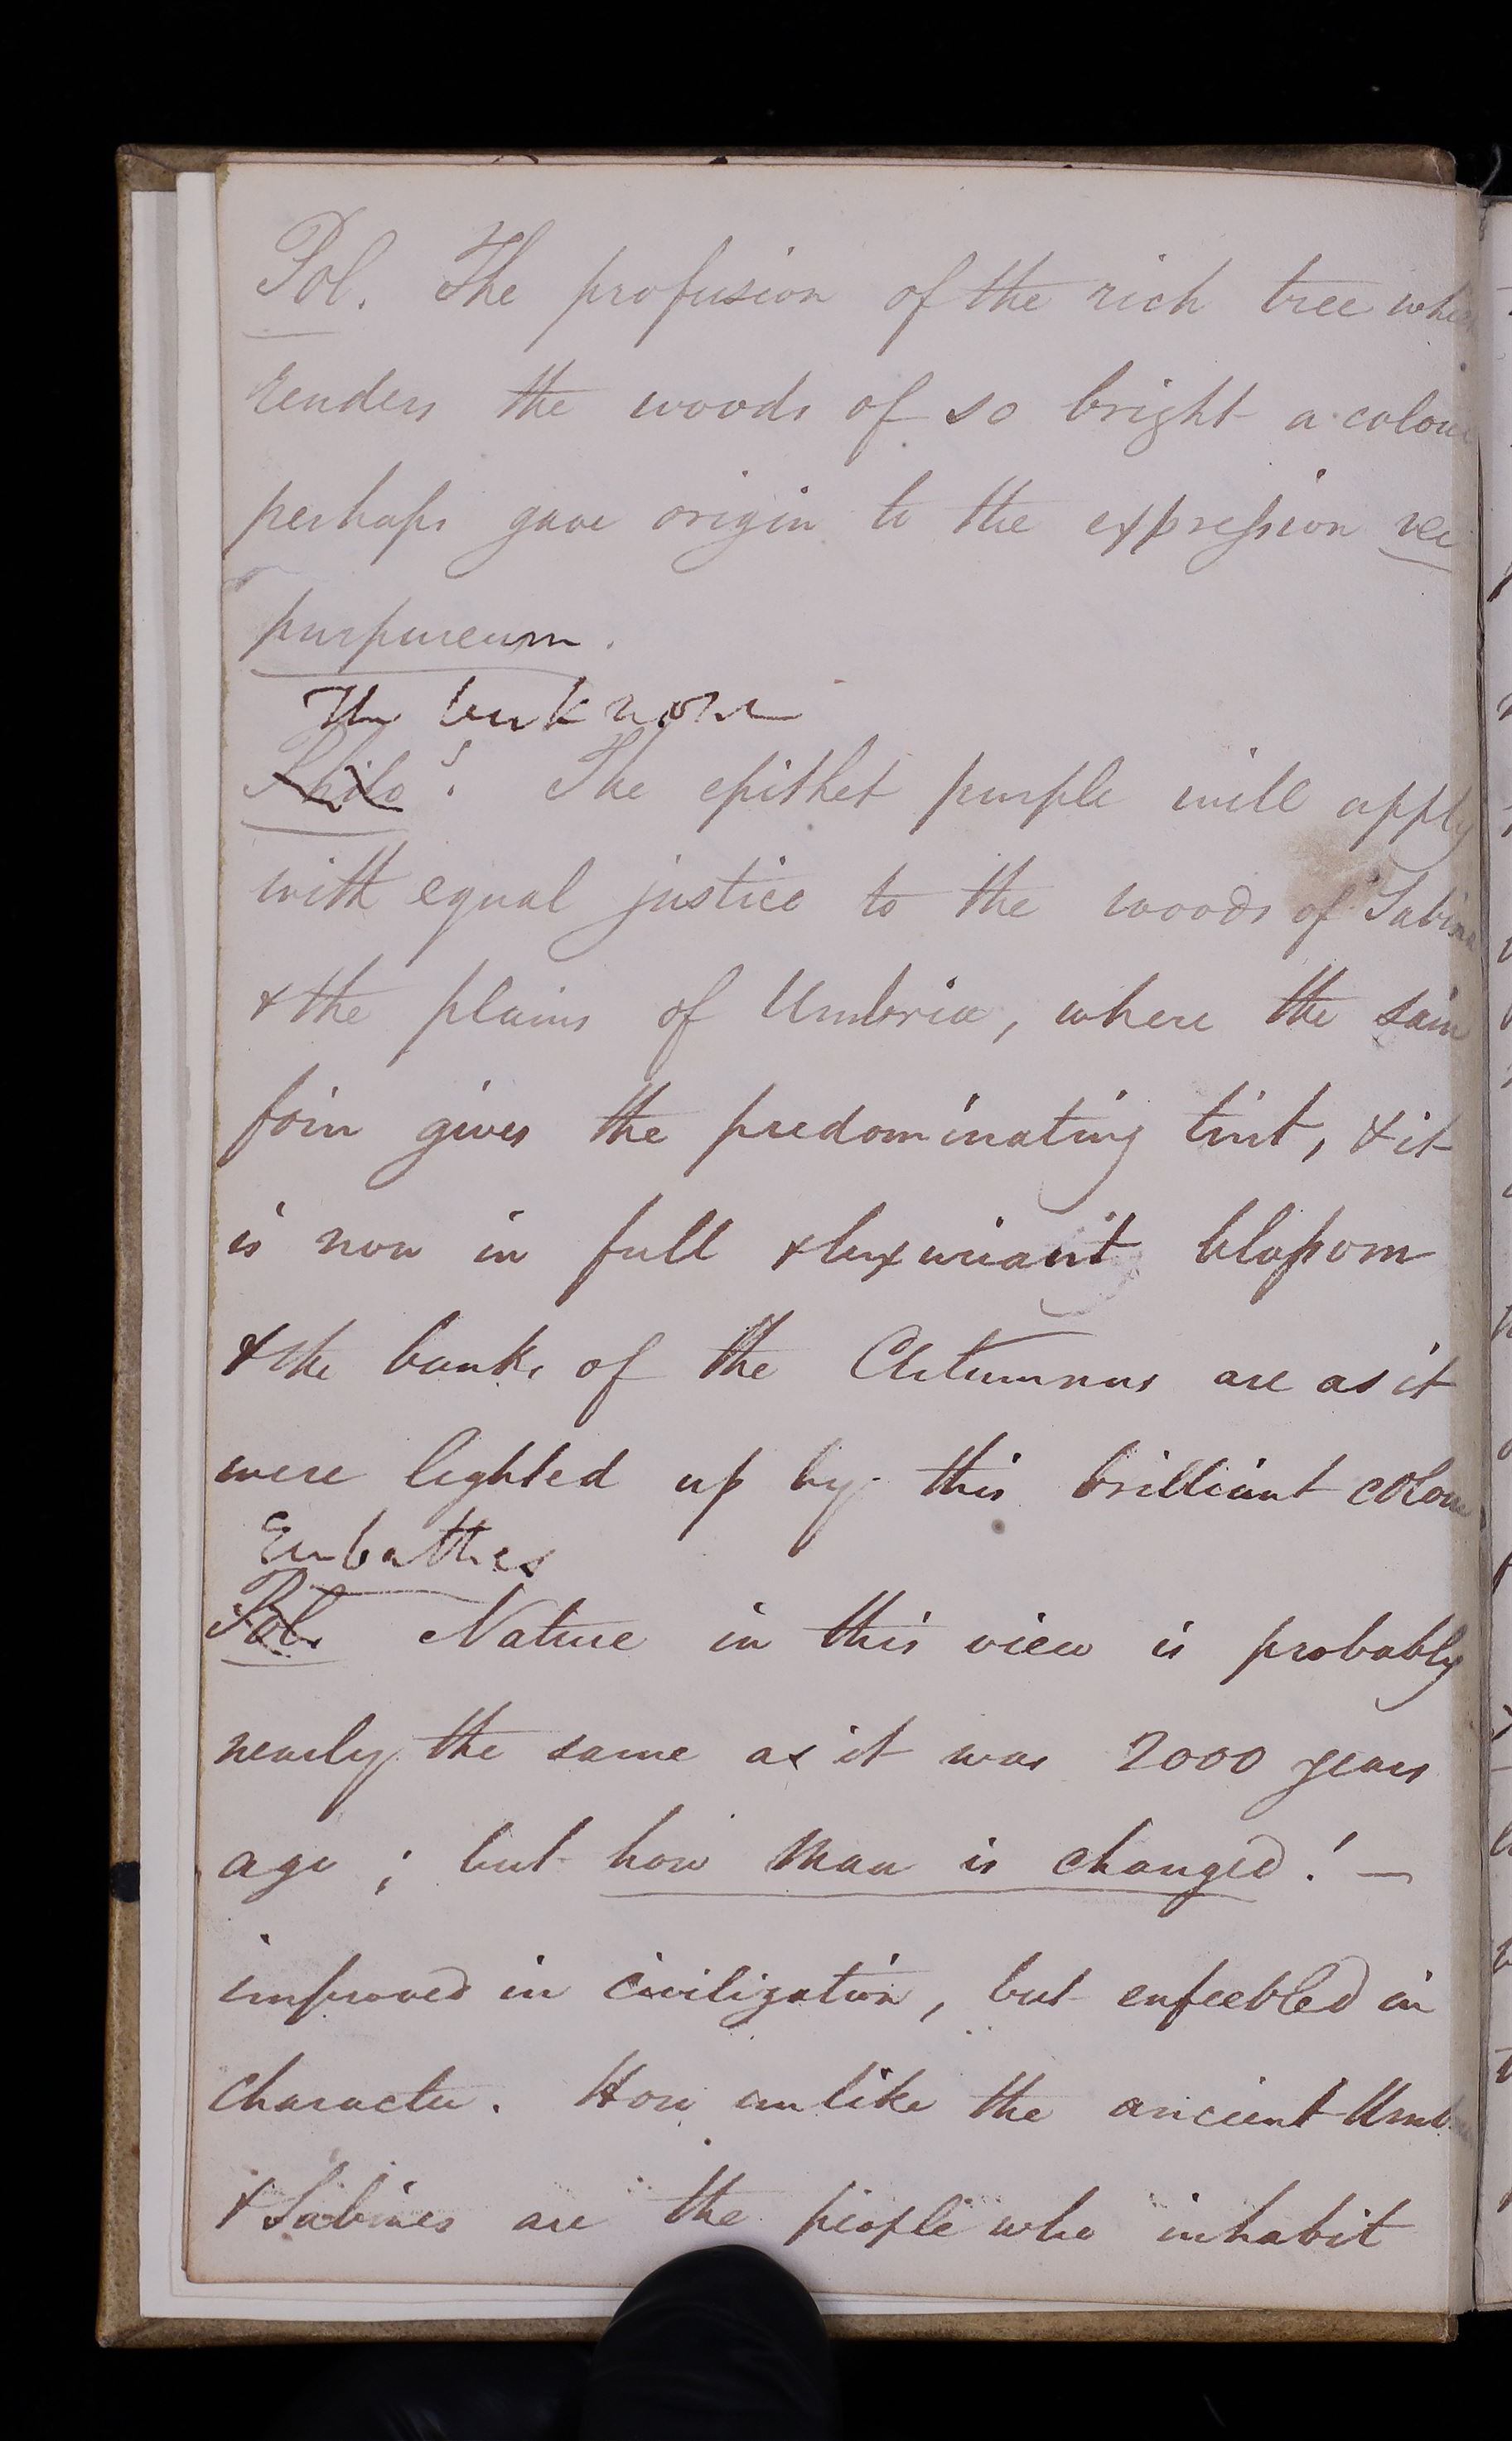 Pol. The profusion of the rich tree which
renders the woods of so bright a colour
perhaps gave origin to the expression ver
purpureum.
The Unknown
Philos. The epithet purple will apply
with equal justice to the woods of Sabina
& the plains of Umbria, where the sain
foin gives the predominating tint, & it
is now in full & luxuriant blossom
& the banks of the Clitumnus are as it
were lighted up by this brilliant colour
Eubathes
Pol. Nature in this view is probably
nearly the same as it was 2000 years
ago ; but how man is changed! —
improved in civilization, but enfeebled in
character. How unlike the ancient
& Sabines are the people who inhabit